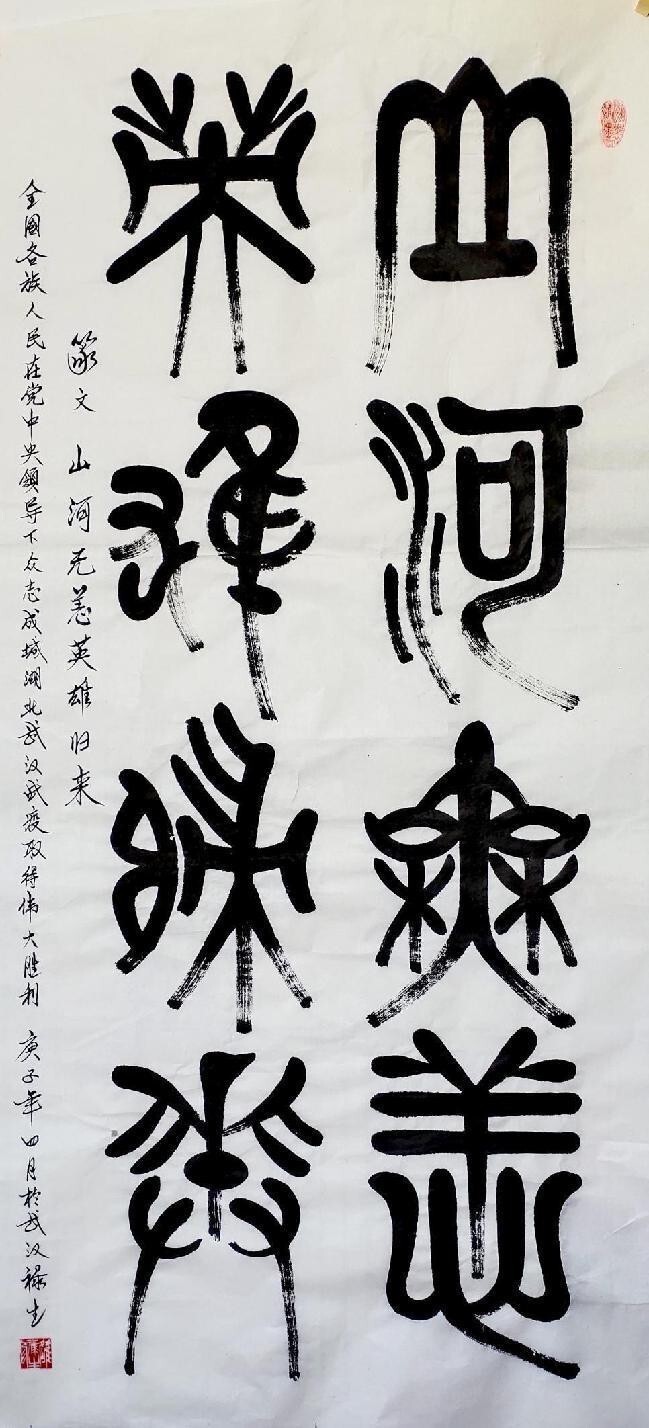 山河無恙
英雄歸來
篆文 山河无恙英雄归来
全國各族人民在党中央领导下众志成城湖北武汉战疫取得伟大胜利 庚子年四月於武汉禄生